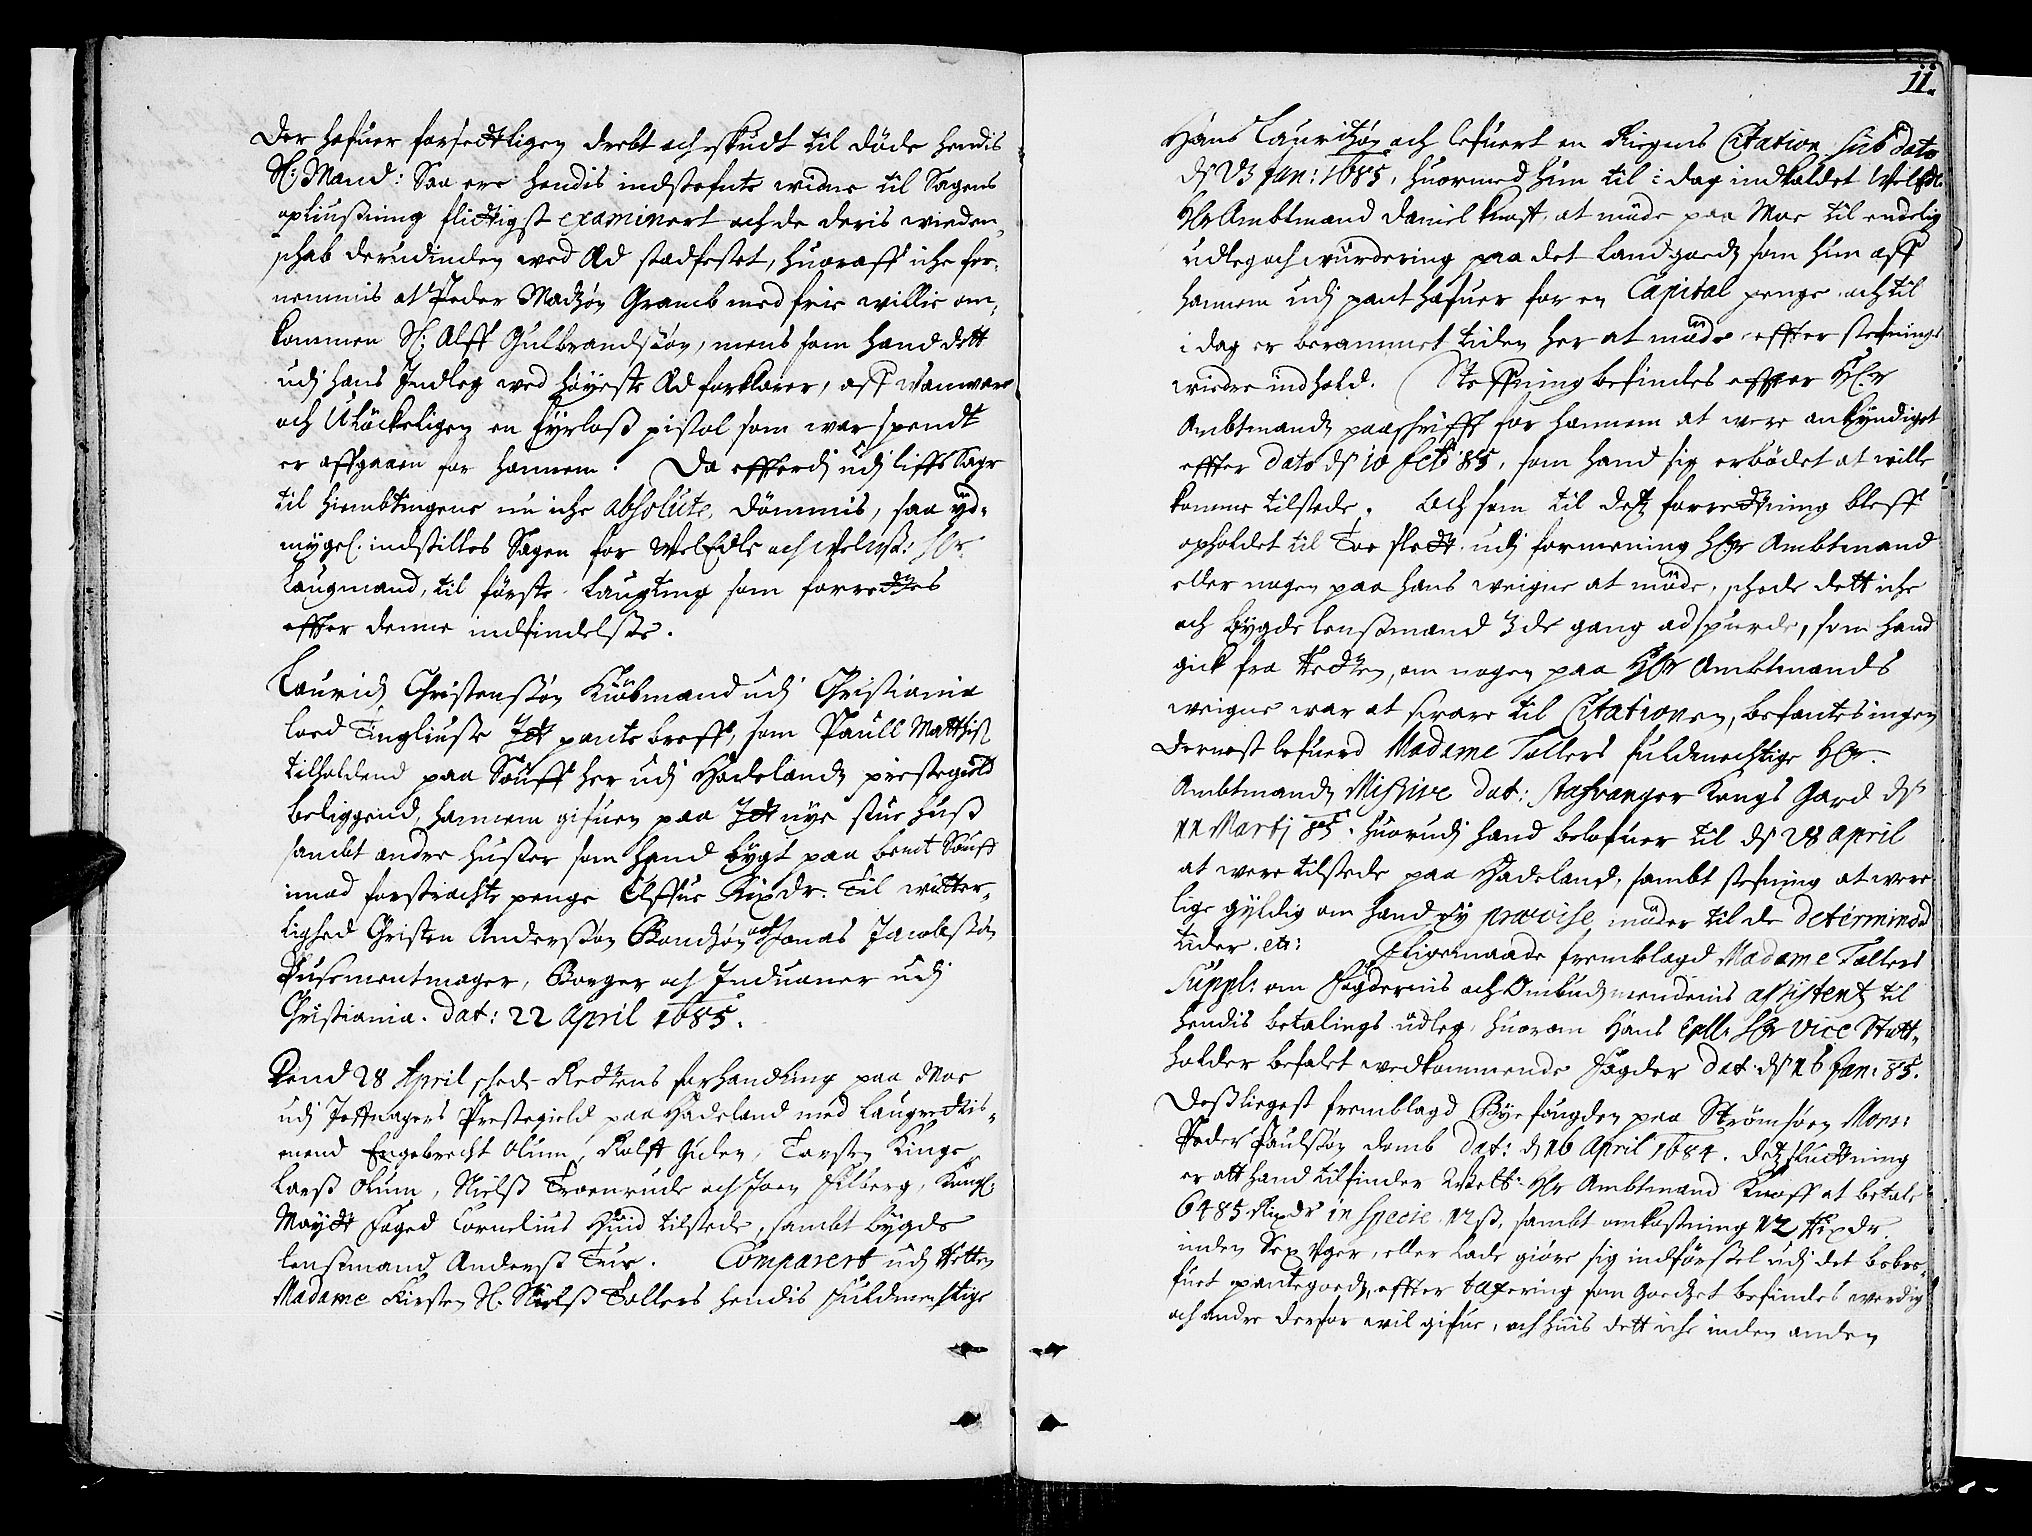 Der hafuer forsettligen drebt och skudt til döde hendis
Sl: Mand: Saa ere hendis indstefnte widne til Sagens
opliusning flittigst examinert och de deris wieden,
schab derudinden wed Æd stadfestet, huoraff iche for,
nemmis at Peder Madtzøn Gramb med frie willie om,
kommen Sl: Alff Gulbrandsøn, mens som hand dett
udj hans Indleg wed høyeste Æd forklarer, aff wanware
och Uløckeligen en fyrlaas pistol som war spendt
er affgaaen for hannem. Da efftersom udj liffs Sager
til Hiembtingene nu iche absolute dömmis, saa yd=
mygel. indstilles Sagen for WelEdle och welwise Hr
Laugmand, til første Laugting som forrettes
effter denne indfindelse.
Lauridz Christensøn Kiöbmand udj Christiania
loed Tingliuse Jtt pante breff, som Paull Matthis
tilholdend paa Souff her udj Hadelandz prestegield
beliggend, hannem gifuen paa Jtt nye stue huus
sambt andre huuser som hand bygt paa bemt Souff
imod forstrachte penge Elfue Rixdr. Til witter,
lighed Christen Andersøn Bondzøn och Jonas Jacobsøn
Pusementmager, Borger och Induaaner udj
Christiania. dat: 22 April 1685.
Dend 28 April schede Rettens forhandling paa Moe
udj Jeffnagers Prestegield paa Hadeland med laugrettis=
mend Engebrecht Olum, Rolff Gulen, Torsten Kinge
Lars Olum, Niels Troenrude och Joen Silberg, Kongl:
Mayts Foged Cornelius Huid tilstede, sambt bygde
lensmand Anders Tew. Comparert udj Retten
Madame Kirsten Sl. Niels Tollers hendis fuldmechtige
11.
Hans Lauritzøn och lefuert en Rigens Citation sub dato
ds 23 Jan: 1685, huormed hun til i dag indkaldet WelEdl.
Hr Ambtmand Daniel Knoff, at møde paa Moe til endelig
udleg och wurdering paa det landgoedz som hun aff
hannem udj pant hafuer for en Capital penge och til
i dag er berammet tiden her at møde, effter stefnings
widre indhold. Steffning befindes effter Hr
Ambtmandz paaschrifft for hannem at were ankyndiget
effter dato ds 10 Feb: 85, som hand sig erbödet at wille
komme tilstede. Och som til dets forretning bleff
opholdet til Toe slett udj formening Hr Ambtmand
eller nogen paa hans weigne at møde, schede dett iche
och bygde lensmand 3de gang adspurde, som hand
gick fra Retten, om nogen paa Hr Ambtmands
weigne war at swarre til Citationen, befantes ingen
Dernest lefuerd Madame Tollers fuldmechtige Hr.
Ambtmandz Missive dat: Stafvanger Kongs Gaard ds
11 Martj 85. huorudj hand belofuer til ds 28 April
at were tilstede paa Hadeland, sambt stefning at were
lige gyldig om hand ey præcise møder til de determined
tider. etc: Ligemaade fremblagd Madame Tollers
Suppl: om Fogdernis och Ombudzmendenis assistentz til
hendis betalings udleg, huorom Hans Exell: Hr Vice Statt,
holder befalet wedkommende Fogder dat. ds 16 Jan: 85.
Desligest fremblagd Byefougden paa Strømsøen Mons:
Peder Paulsøn domb dat: d 16 April 1684. Detz slutning
er att hand tilfinder Welb: Hr Ambtmand Knoff at betale
6485 Rixdr in specie 12 s, sambt omkostning 12 Rixdr.
inden Sex Uger, eller lade giøre sig indførsel udj det bebre,
fuet pantegoedz, effter taxering som Goedzet befindes werdig
och andre derfor wil gifue, och huis dett iche inden anden